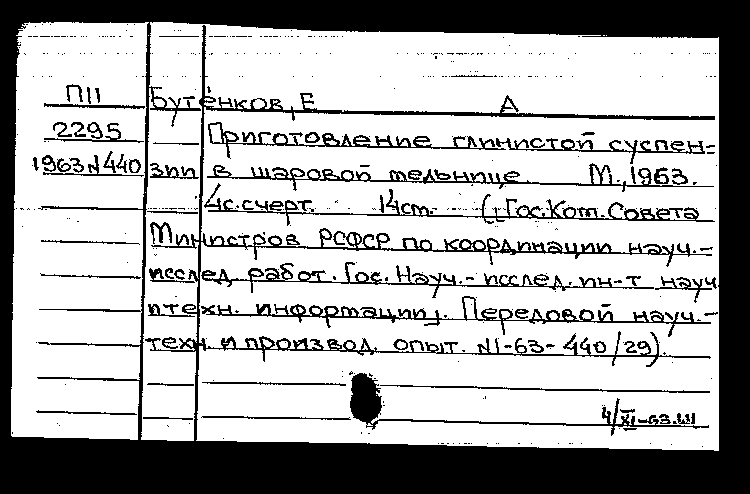 ПII Бутёнков, Е А
2295 Приготовление глинистой суспен=
1963 N440 зии в шаровой мельнице. М., 1963.
4с. с черт. 14см. (Гос. Ком. Совета
Министров РСФСР по координации науч.-
исслед. работ. Гос. Науч.- исслед. ин-т науч.
и техн. информации). Передовой науч.-
техн. и производ. опыт. N1-63-440/29).
4/XI-63.